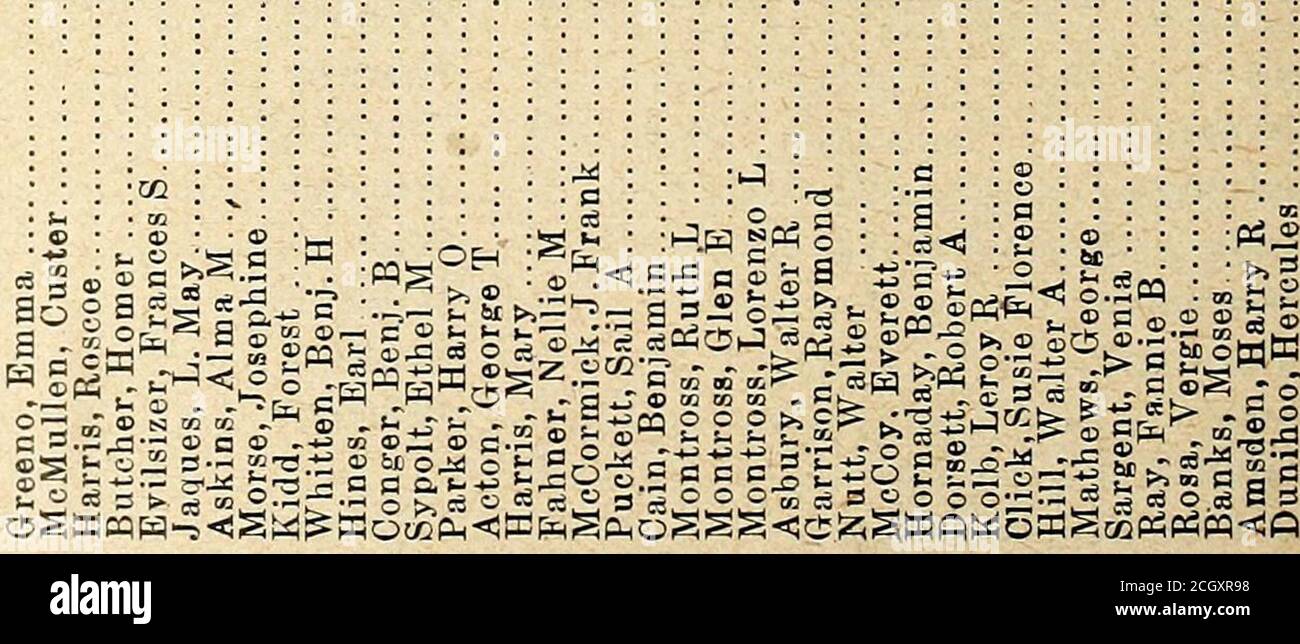 Greeno, Emma
McMullen, Custer
Harris, Roscoe
Butcher, Homer
Evilsizer, Frances S
Jaques, L. May
Askins, Alma M
Morse, Josephine
Kidd, Forest
Whitten, Benj. H
Hines, Earl
Conger, Benj. B
Sypolt, Ethel M
Parker, Harry O
Acton, George T
Harris, Mary
Fahner, Nellie M
McCormick, J Frank
Puckett, Sail A
Cain, Benjamin
Montross, Ruth L
Montross, Glen E
Montross, Lorenzo L
Asbury, Walter R
Garrison, Raymond
Nutt, Walter
McCoy, Everett
Hornaday, Benjamin
Dorsett, Robert A
Kolb, Leroy R
Click, Susie Florence
Hill, Walter A
Mathews, George
Sargent, Venia
Ray, Fannie B
Rosa, Vergie
Banks, Moses
Amsden, Harry R
Dunihoo, Hercules
alamy
Image ID: 2CGXR98
www.alamy.com